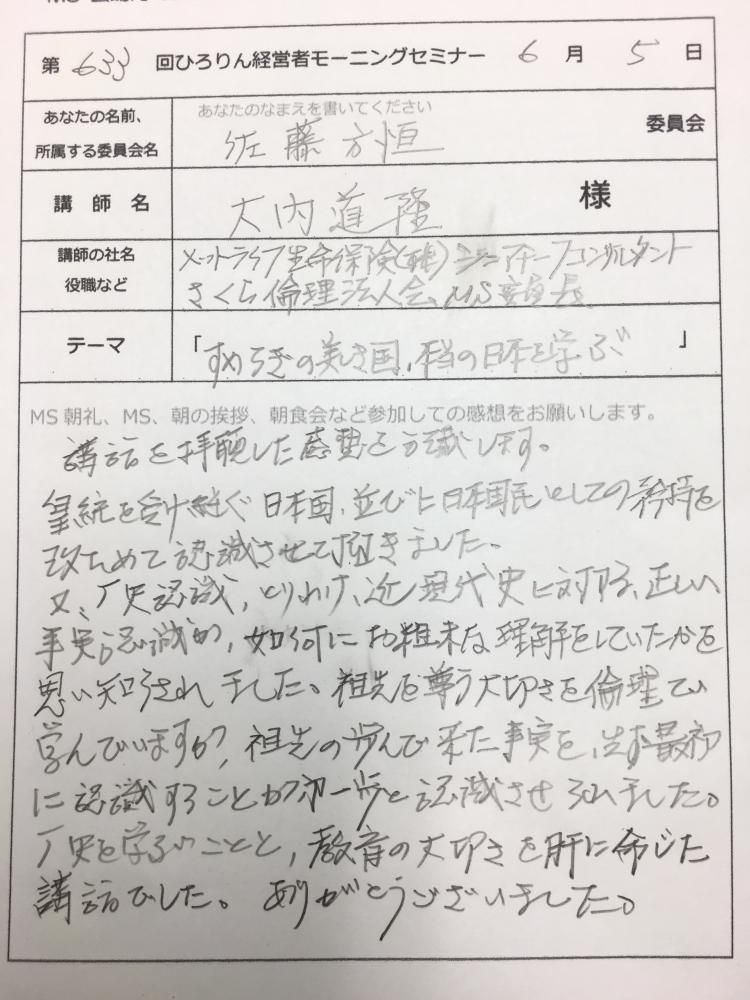 第 633 回ひろりん経営者モーニングセミナー 6 月 5 日
あなたの名前、
所属する委員会名
あなたのなまえを書いてください
佐藤方恒
委員会
講 師 名
大内道隆
様
講師の社名
役職など
メットライフ生命保険(株)シニアチーフコンサルタント
さくら倫理法人会、MS委員長
テーマ
「すめらぎの美しき国、本当の日本を学ぶ」
MS朝礼、MS、朝の挨拶、朝食会など参加しての感想をお願いします。
講話を拝聴した感想を
します。
皇統を受け継ぐ日本国、並びに日本国民としての矜持を
改ためて認識させて頂きました。
又、厂史認識、とりわけ、近現代史に対する、正しい
事実認識が、如何にお粗末な理解をしていたかを
思い知らされました。祖先を尊う大切さを倫理で
学んでいますが、祖先の歩んで来た事実を、先ず最初
に認識することが初一歩と認識させられました。
厂史を学ぶことと、教育の大切さを肝に命じた
講話でした。ありがとうございました。